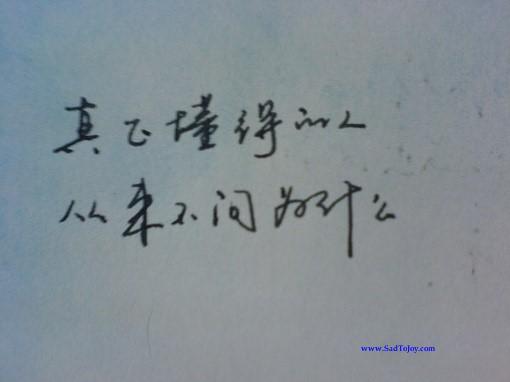 真正懂得的人
从来不问为什么
www.SadToJoy.com